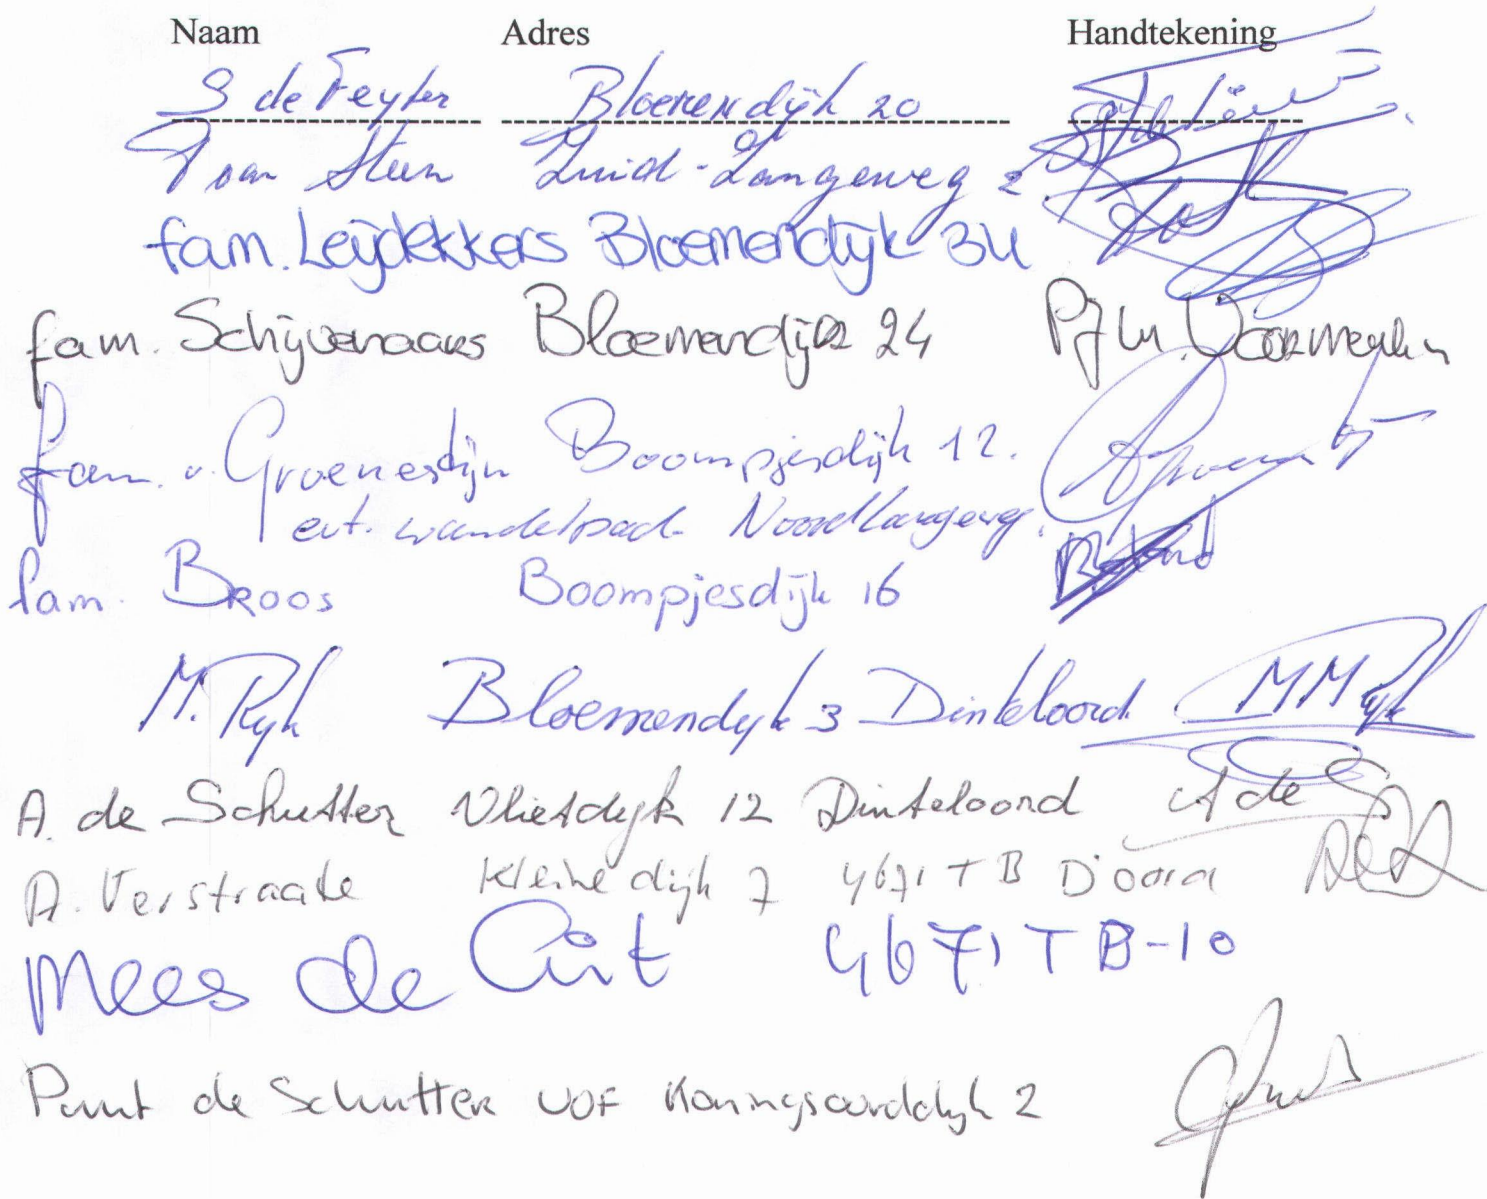 Naam Adres Handtekening
S de Feyter Bloemendijk 20
P van Steen Zuid-Langeweg 2
fam. Leijdekkers Bloemendijk 34
fam. Schijvenaars Bloemendijk 24 PJM.
fam. v. Groenestijn Boompjesdijk 12.
evt. wandelpad Noordlangeweg.
fam. BROOS Boompjesdijk 16
M. Ryk Bloemendyk 3 Dinteloord MM Ryk
A. de Schutter Vlietdyk 12 Dinteloord A de
A. Verstraate Kleine dijk 7 4671 TB D'oord
Mees de 4671 TB-10
Punt de Schutter VOF Koningsoorddijk 2